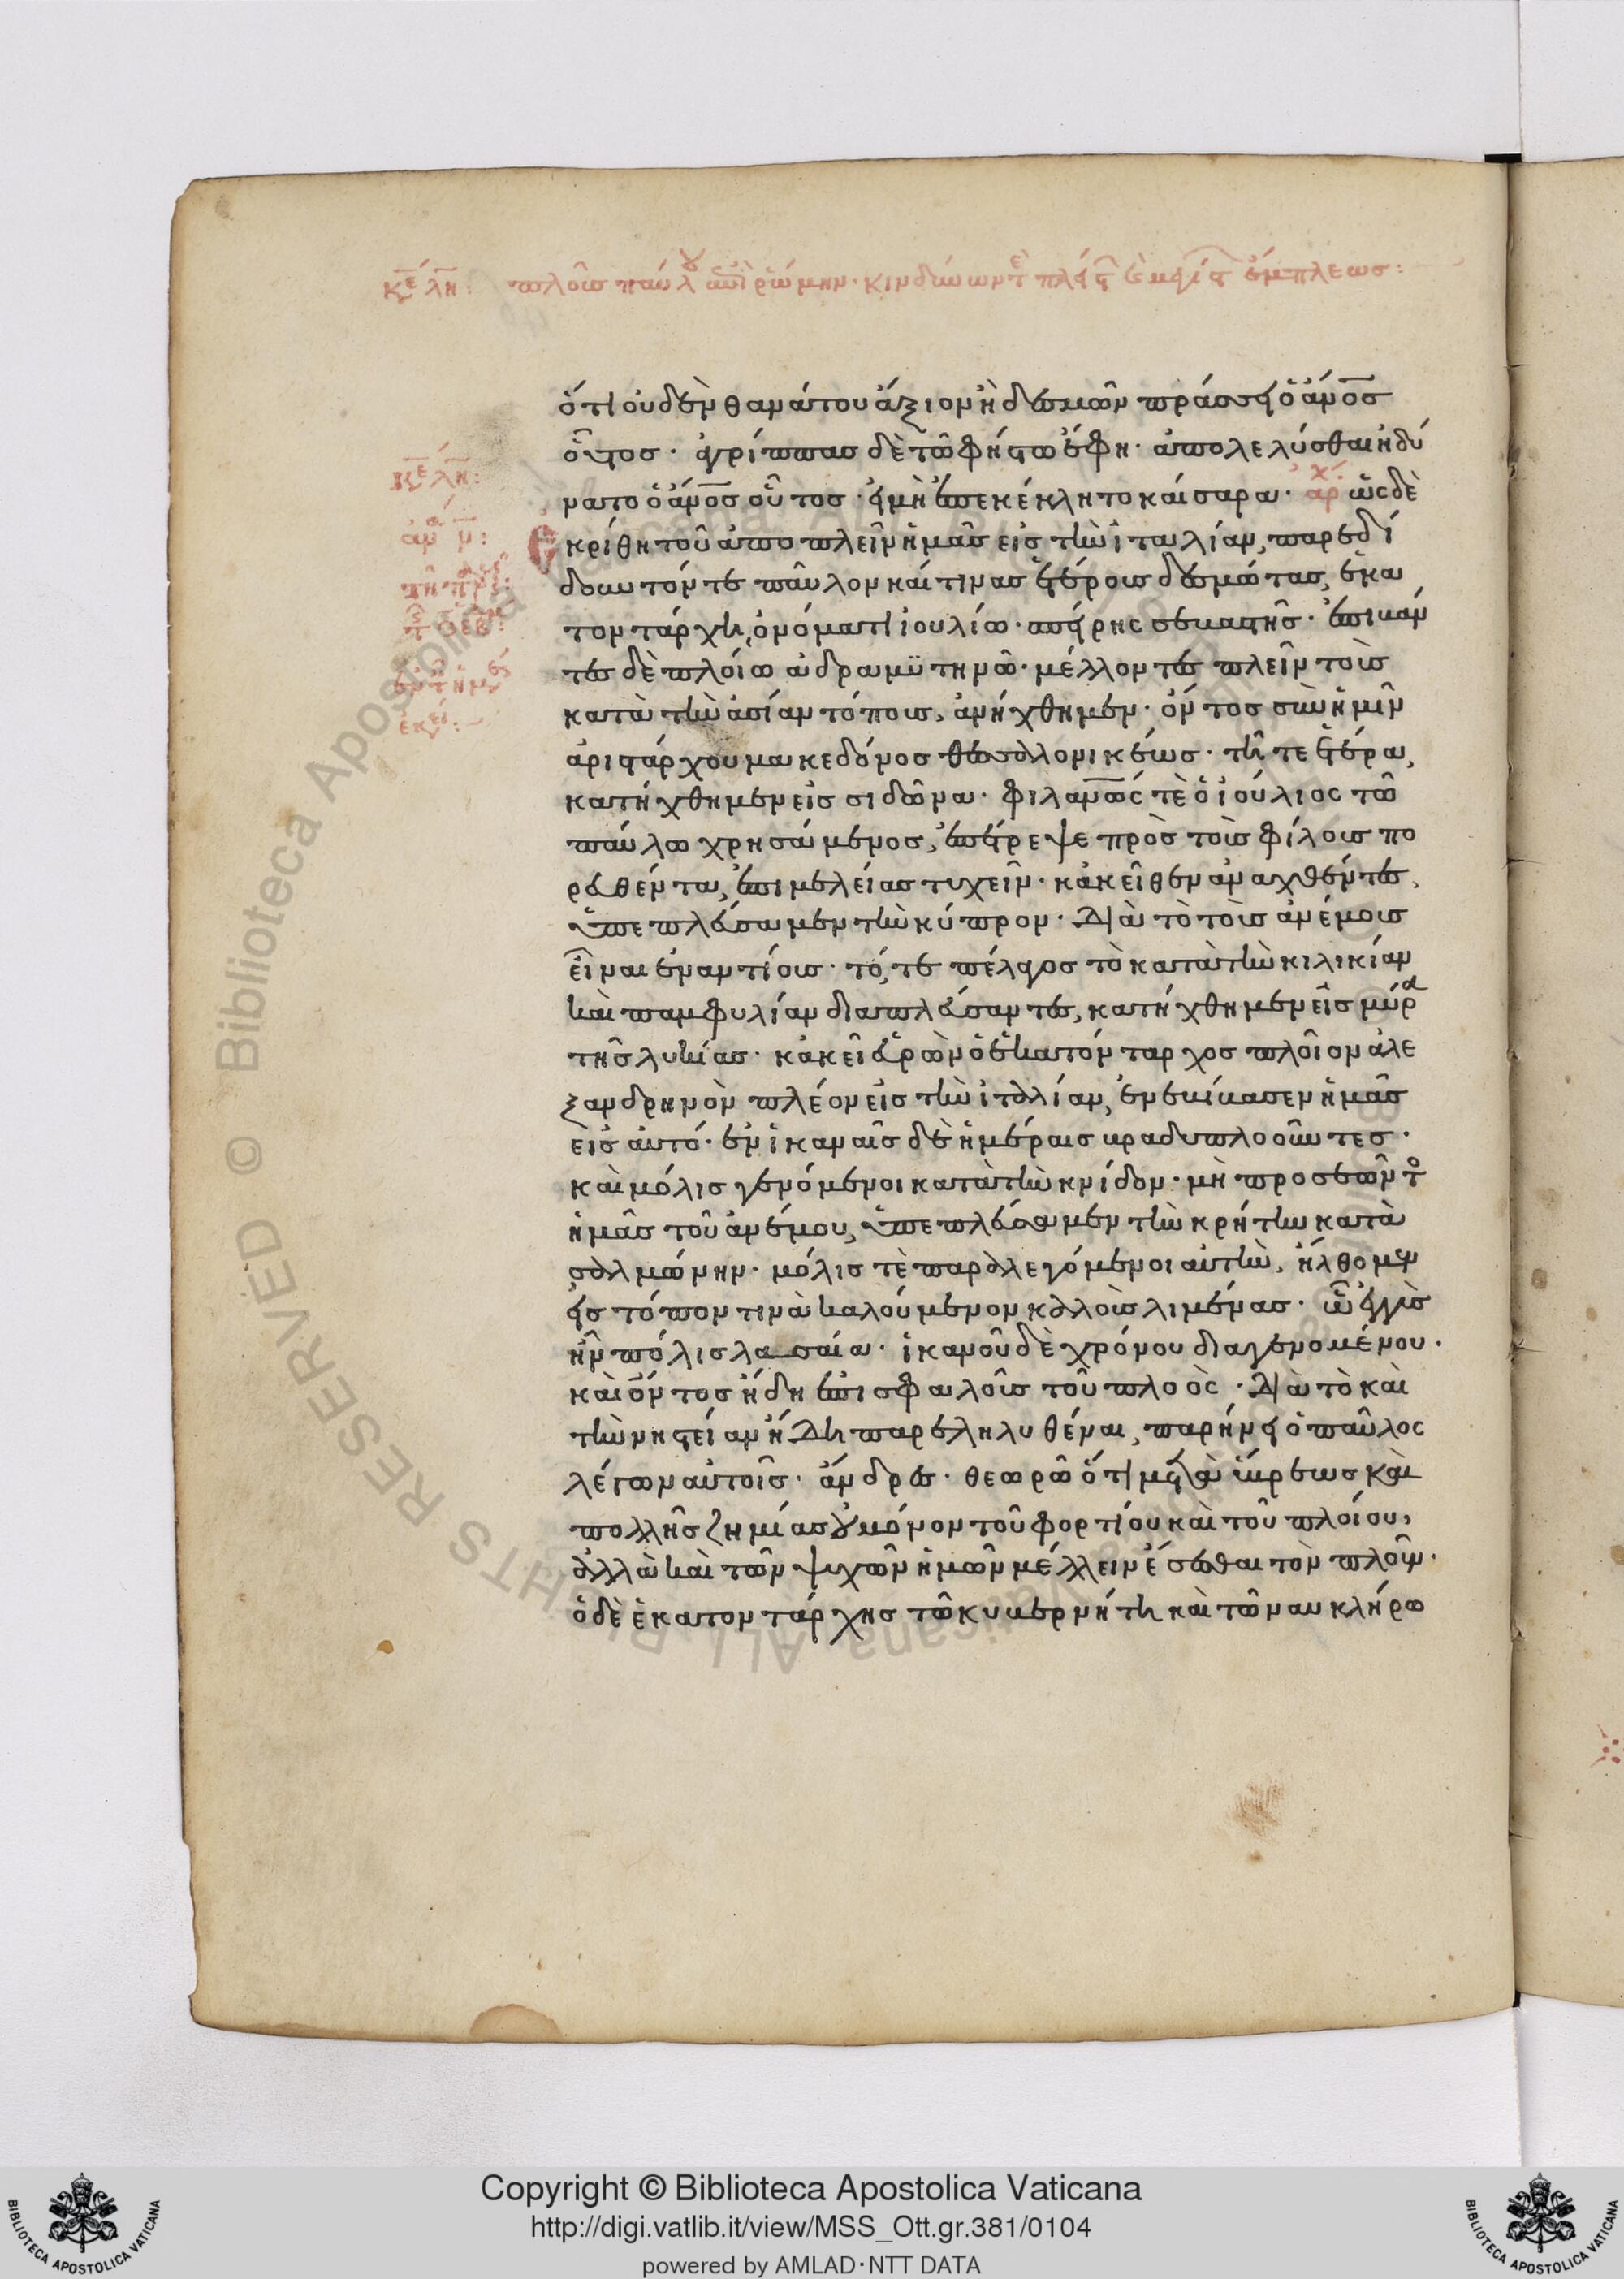 ὅτι οὐδὲν θανάτου ἄξιον ἢ δεσμῶν πράσσει ὁ ἄνος
οὗτος · ἀγρίππας δὲ τῶ φήστω ἔφη · ἀπολελύσθαι ἠδύ
νατο ὁ ἄνος οὗτος · εἰ μὴ ἐπεκέκλητο καίσαρα · ἀρχ ὡς δὲ
Ἐκρίθη τοῦ ἀποπλεῖν ἡμᾶς εἰς τὴν ἰταλίαν, παρεδί
δουν τόν τε παῦλον καί τινας ἑτέρους δεσμώτας, ἑκα
τοντάρχη, ὀνόματι ἰουλίω · σπείρης σεβαστῆς · ἐπιβάν
τες δὲ πλοίω ἀδραμϋτηνῶ · μέλλοντες πλεῖν τοὺς
κατὰ τὴν ἀσίαν τόπους, ἀνήχθημεν · ὄντος σὺν ἡμῖν
ἀριστάρχου μακεδόνος θεσσαλονικέως · τῆ τε ἑτέρα,
κατήχθημεν εἰς σιδῶνα · φιλανως τὲ ὁ ἰούλιος τῶ
παύλω χρησάμενος, ἐπέτρεψε πρὸς τοὺς φίλους πο
ρευθέντα, ἐπιμελείας τυχεῖν · κἀκεῖθεν ἀναχθέντες,
ὑπεπλεύσαμεν τὴν κύπρον · διὰ τὸ τοὺς ἀνέμους
εἶναι ἐναντίους · τό, τε πέλαγος τὸ κατὰ τὴν κιλικίαν
καὶ παμφυλίαν διαπλεύσαντες, κατήχθημεν εἰς μύρα
τῆς λυκίας · κἀκεῖ εὑρὼν ὁ ἑκατόνταρχος πλοῖον ἀλε
ξανδρηνὸν πλέον εἰς τὴν ἰταλίαν, ἐνεβίβασεν ἡμᾶς
εἰς αὐτό · ἐν ἱκαναῖς δὲ ἡμέραις βραδυπλοοῦντες ·
καὶ μόλις γενόμενοι κατὰ τὴν κνίδον · μὴ προσεῶντο
ἡμᾶς τοῦ ἀνέμου, ὑπεπλεύσαμεν τὴν κρήτην κατὰ
σαλμώνην · μόλις τὲ παραλεγόμενοι αὐτὴν, ἤλθομεν
εἰς τόπον τινὰ καλούμενον καλλοὺς λιμένας · ὧ ἐγγὺς
ἦν πόλις λασαία · ἱκανοῦ δὲ χρόνου διαγενομένου ·
καὶ ὄντος ἤδη ἐπισφαλοῦς τοῦ πλοὸς · διὰ τὸ καὶ
τὴν νηστείαν ἤδη παρεληλυθέναι, παρήνει ὁ παῦλος
λέγων αὐτοῖς · ἄνδρες · θεωρῶ ὅτι μετὰ ὕβρεως καὶ
πολλῆς ζημίας οὐ μόνον τοῦ φορτίου καὶ τοῦ πλοίου,
ἀλλὰ καὶ τῶν ψυχῶν ἡμῶν μέλλειν ἔσεσθαι τὸν πλοῦν ·
ὁ δὲ ἑκατοντάρχης τῶ κυβερνήτη καὶ τῶ ναυκλήρω
Copyright © Biblioteca Apostolica Vaticana
http://digi.vatlib.it/view/MSS_Ott.gr.381/0104
powered by AMLAD·NTT DATA
BIBLIOTECA APOSTOLICA VATICANA
BIBLIOTECA APOSTOLICA VATICANA